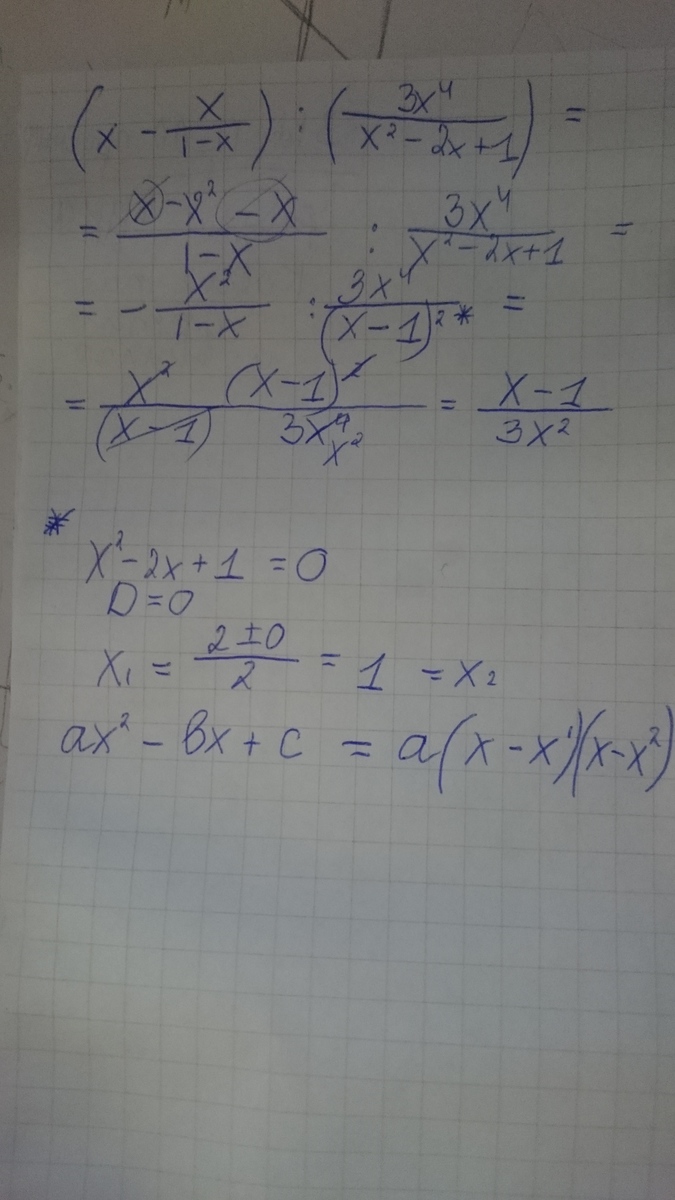 (x - x/(1-x)) : (3x⁴/(x² - 2x + 1)) =
= (x - x² - x)/(1-x) : 3x⁴/(x² - 2x + 1) =
= - x²/(1-x) : 3x⁴/(x-1)² * =
= x² (x-1)²/((x-1) 3x⁴ x²) = (x-1)/(3x²)
*
x² - 2x + 1 = 0
D = 0
x₁ = (2 ± 0)/2 = 1 = x₂
ax² - bx + c = a(x - x¹)(x - x²)